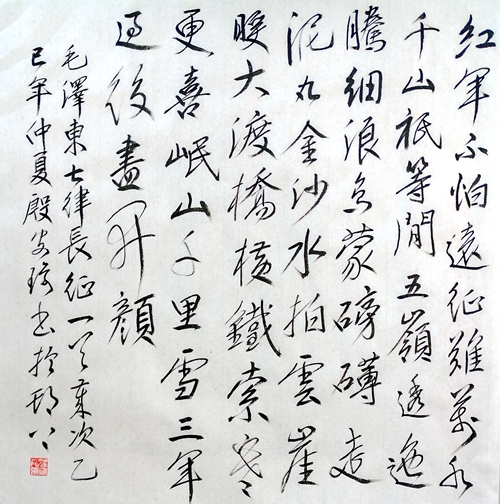 紅軍不怕遠征難萬水
千山衹等閒五嶺逶迤
騰細浪烏蒙磅礴走
泥丸金沙水拍雲崖
暖大渡橋橫鐵索寒
更喜岷山千里雪三軍
過後盡開顏
毛澤東七律長征一首歲次乙
巳年仲夏殷書於